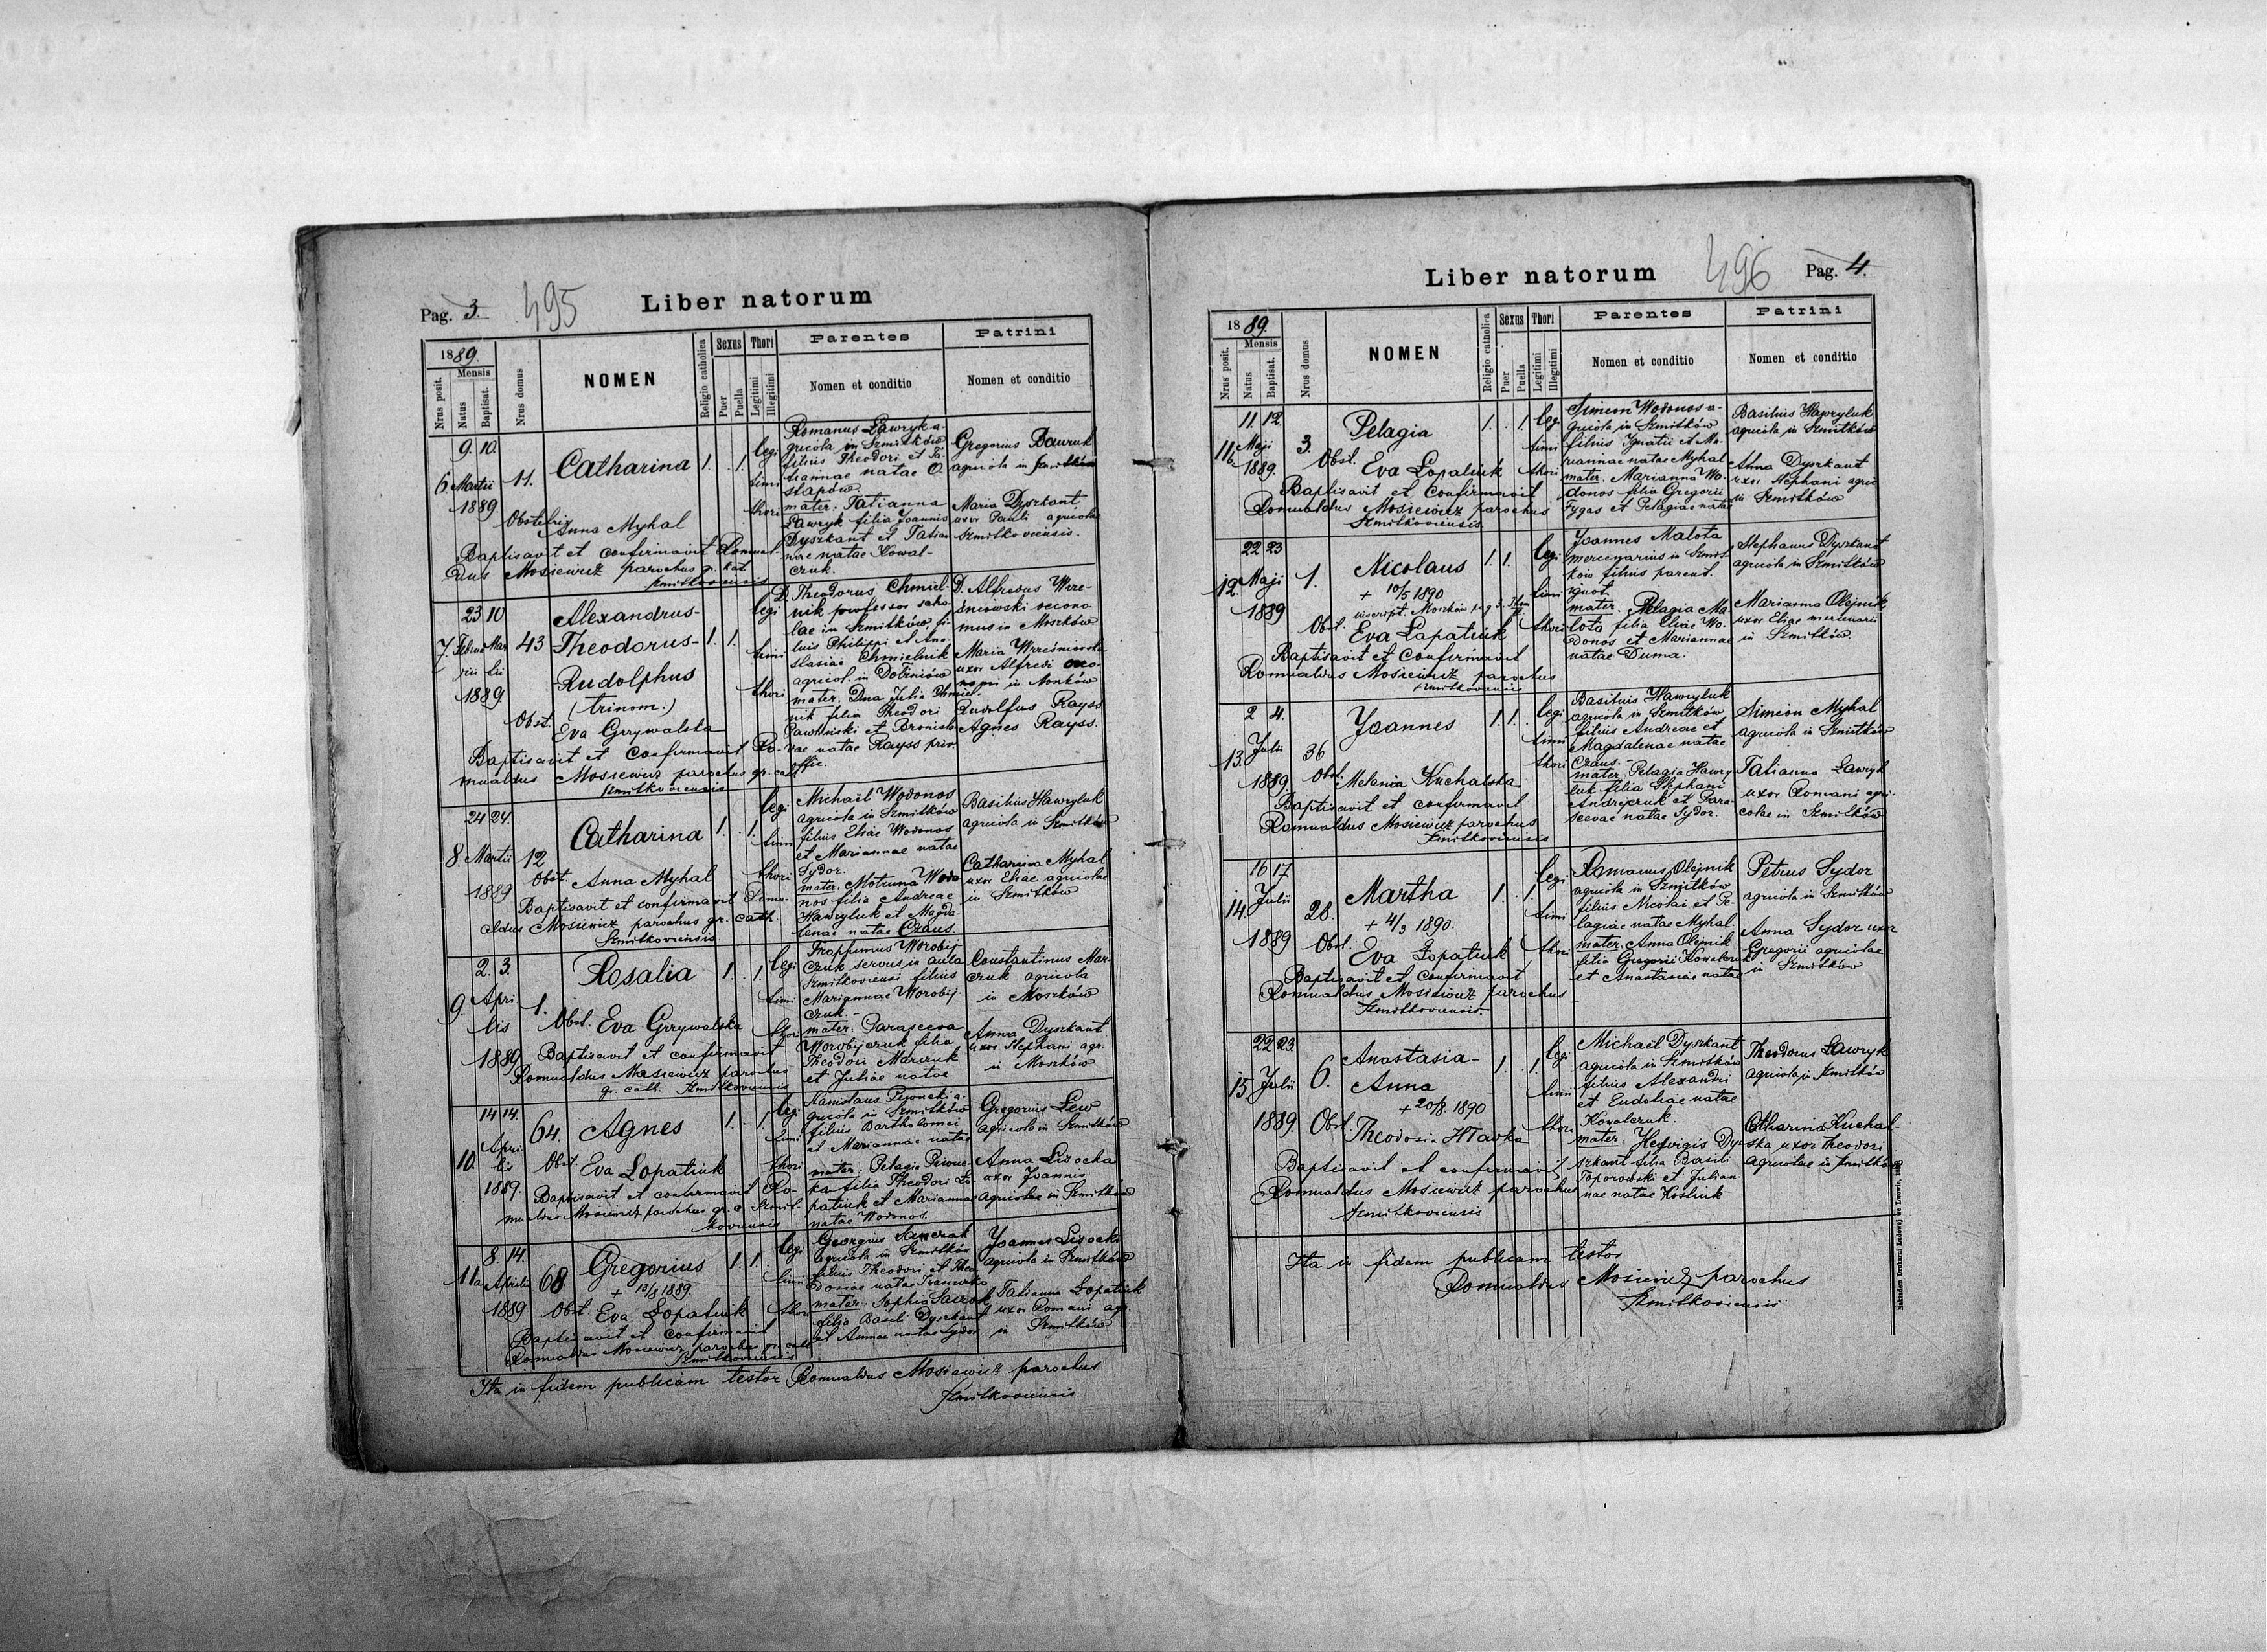 Pag. 3. 495 Liber natorum
1889.
Nrus posit.
Mensis
Natus
Baptisat.
Nrus domus
NOMEN
Religio catholica
Sexus
Puer
Puella
Thori
Legitimi
Illegitimi
Parentes
Nomen et conditio
Patrini
Nomen et conditio
6. 9. 10. Martii 1889
11.
Catharina
1. 1.
legi
timi
thori
Obstetrix
Anna Myhal
Baptisavit et confirmavit Romual-
dus Mosiewicz parochus gr. cat
Szmitkoviensis
Romanus Ławryk a-
gricola in Szmitków
filius Theodori et Ta-
tiannae natae O.
stapów
mater. Tatianna
Ławryk filia Joannis
Dyszkant et Tatian
nae natae Kowal-
czuk.
Gregorius Bauruk
agricola in Szmitków
Maria Dyszkant
uxor Pauli agricolae
Szmitkoviensis.
7. 23 10 Februarii Martii 1889.
43
Alexandrus-
Theodorus-
Rudolphus
(trinom.)
1. 1.
legi
timi
thori
Obst.
Eva Grzywalska
Baptisavit et Confirmavit Ro-
mualdus Mosiewicz parochus gr. catt
Szmitkoviensis
D. Theodorus Chmiel-
nik professor scho
lae in Szmitków, fi-
lius Philippi et Ana-
stasiae Chmielnik
agricol. in Dobriniów
mater. Dna Julia Chmiel-
nik filia Theodori
Pawliński et Bronisla
vae natae Rayss priv.
offic.
D. Alfredus Wrze-
śniowski oecono
mus in Moszków
Maria Wrześniowska
uxor Alfredi oeco-
nomi in Moszków
Rudolfus Rayss
Agnes Rayss.
8. 24 24. Martii 1889
12
Catharina
1. 1.
legi
timi
thori
Obst. Anna Myhal
Baptisavit et confirmavit Romu-
aldus Mosiewicz parochus gr. cath
Szmitkoviensis
Michaël Wodonos
agricola in Szmitków
filius Eliae Wodonos
et Mariannae natae
Sydor.
mater. Motruna Wodo
nos filia Andreae
Hawryluk et Magda-
lenae natae Czaus
Basilius Hawryluk
agricola in Szmitków
Catharina Myhal
uxor Eliae agricolae
in Szmitków
9. 2. 3. Apri
lis 1889
1.
Rosalia
1. 1.
legi
timi
thori
Obst. Eva Grzywalska
Baptisavit et confirmavit
Romualdus Mosiewicz parochus
gr. catt. Szmitkoviensis
Trophimus Worobij
czuk servus in aula
Szmitkoviensi filius
Mariannae Worobij-
czuk.-
mater. Parasceva
Worobijczuk filia
Theodori Marczuk
et Juliae natae
Constantinus Mar-
czuk agricola
in Moszków
Anna Dyszkant
uxor Stephani agr.
in Moszków
10. 14 14. Apri
lis 1889.
64.
Agnes
1. 1.
legi
timi
thori
Obst. Eva Lopatiuk
Baptisavit et confirmavit Ro-
mualdus Mosiewicz parochus gr. c Szmit-
koviensis
Stanislaus Piwoncki a-
gricola in Szmitków
filius Bartholomei
et Mariannae natae
mater: Pelagia Piwonc-
ka filia Theodori Lo-
patiuk et Mariannae
natae Wodonos.
Gregorius Lew
agricola in Szmitków
Anna Lisocka
uxor Joannis
agricolae in Szmitków
11a 8. 14. Aprilis 1889
68
Gregorius
+ 13/8 1889.
1. 1.
legi
timi
thori
Obst. Eva Lopatiuk
Baptisavit et confirmavit
Romualdus Mosiewicz parochus gr. catt
Szmitkoviensis
Georgius
agricola in Szmitków
filius Theodori et Theo
dosiae natae
mater: Sophia
filia Basili Dyszkant
et Annae natae Sydor
Joannes Lisocki
agricola in Szmitków
Tatianna Lopatiuk
uxor Romani agr.
in Szmitków
Ita in fidem publicam testor Romualdus Mosiewicz parochus
Szmitkoviensis
Liber natorum 496 Pag. 4.
1889.
Nrus posit.
Mensis
Natus
Baptisat.
Nrus domus
NOMEN
Religio catholica
Sexus
Puer
Puella
Thori
Legitimi
Illegitimi
Parentes
Nomen et conditio
Patrini
Nomen et conditio
11b 11. 12. Maji 1889.
3.
Pelagia
1. 1.
legi
timi
thori
Obst. Eva Lopatiuk
Baptisavit et Confirmavit
Romualdus Mosiewicz parochus
Szmitkoviensis.
Simeon Wodonos a-
gricola in Szmitków
filius Ignatii et Ma-
riannae natae Myhal
mater. Marianna Wo-
donos filia Gregorii
Fygas et Pelagiae natae
Basilius Hawryluk
agricola in Szmitków
Anna Dyszkant
uxor Stephani agric
in Szmitków
12. 22 23 Maji 1889
1.
Nicolaus
+ 10/5 1890
1. 1.
legi
timi
thori
Obst. Eva Lapatiuk
Baptisavit et Confirmavit
Romualdus Mosiewicz parochus
Szmitkoviensis
Joannes Malota
mercenarius in Szmit
ków filius parent.
ignot.
mater. Pelagia Ma-
lota filia Eliae Wo-
donos et Mariannae
natae Duma.
Stephanus Dyszkant
agricola in Szmitków
Marianna Olejnik
uxor Eliae mercenarii
in Szmitków.
13. 2 4. Julii 1889.
36
Joannes
1. 1.
legi
timi
thori
Obst. Melania Kuchalska
Baptisavit et confirmavit
Romualdus Mosiewicz parochus
Szmitkoviensis
Basilius Hawryluk
agricola in Szmitków
filius Andreae et
Magdalenae natae
Czaus.-
mater. Pelagia Hawry
luk filia Stephani
Andrejczuk et Para-
scevae natae Sydor.
Simeon Myhal
agricola in Szmitków
Tatianna Ławryk
uxor Romani agri-
colae in Szmitków
14. 16 17. Julii 1889
28.
Martha
+ 4/3 1890.
1. 1.
legi
timi
thori
Obst. Eva Lopatiuk
Baptisavit et Confirmavit
Romualdus Mosiewicz parochus
Szmitkoviensis
Romanus Olejnik
agricola in Szmitków
filius Nicolai et Pe-
lagiae natae Myhal
mater. Anna Olejnik
filia Gregorii Kowalczuk
et Anastasiae natae
Petrus Sydor
agricola in Szmitków
Anna Sydor uxor
Gregorii agricolae
in Szmitków
15. 22 23. Julii 1889
6.
Anastasia-
Anna
+ 20/8. 1890
1. 1.
legi
timi
thori
Obst. Theodosia Hławka
Baptisavit et confirmavit
Romualdus Mosiewicz parochus
Szmitkoviensis
Michaël Dyszkant
agricola in Szmitków
filius Alexandri
et Eudokiae natae
Kovalczuk.
mater. Hedvigis Dy-
szkant filia Basili
Toporowski et Julian-
nae natae Kostiuk
Theodorus Ławryk
agricola in Szmitków
Catharina Kuchal-
ska uxor Theodori
agricolae in Szmitków
Ita in fidem publicam testor
Romualdus Mosiewicz parochus
Szmitkoviensis
Nakładem Drukarni Ludowej we Lwowie,